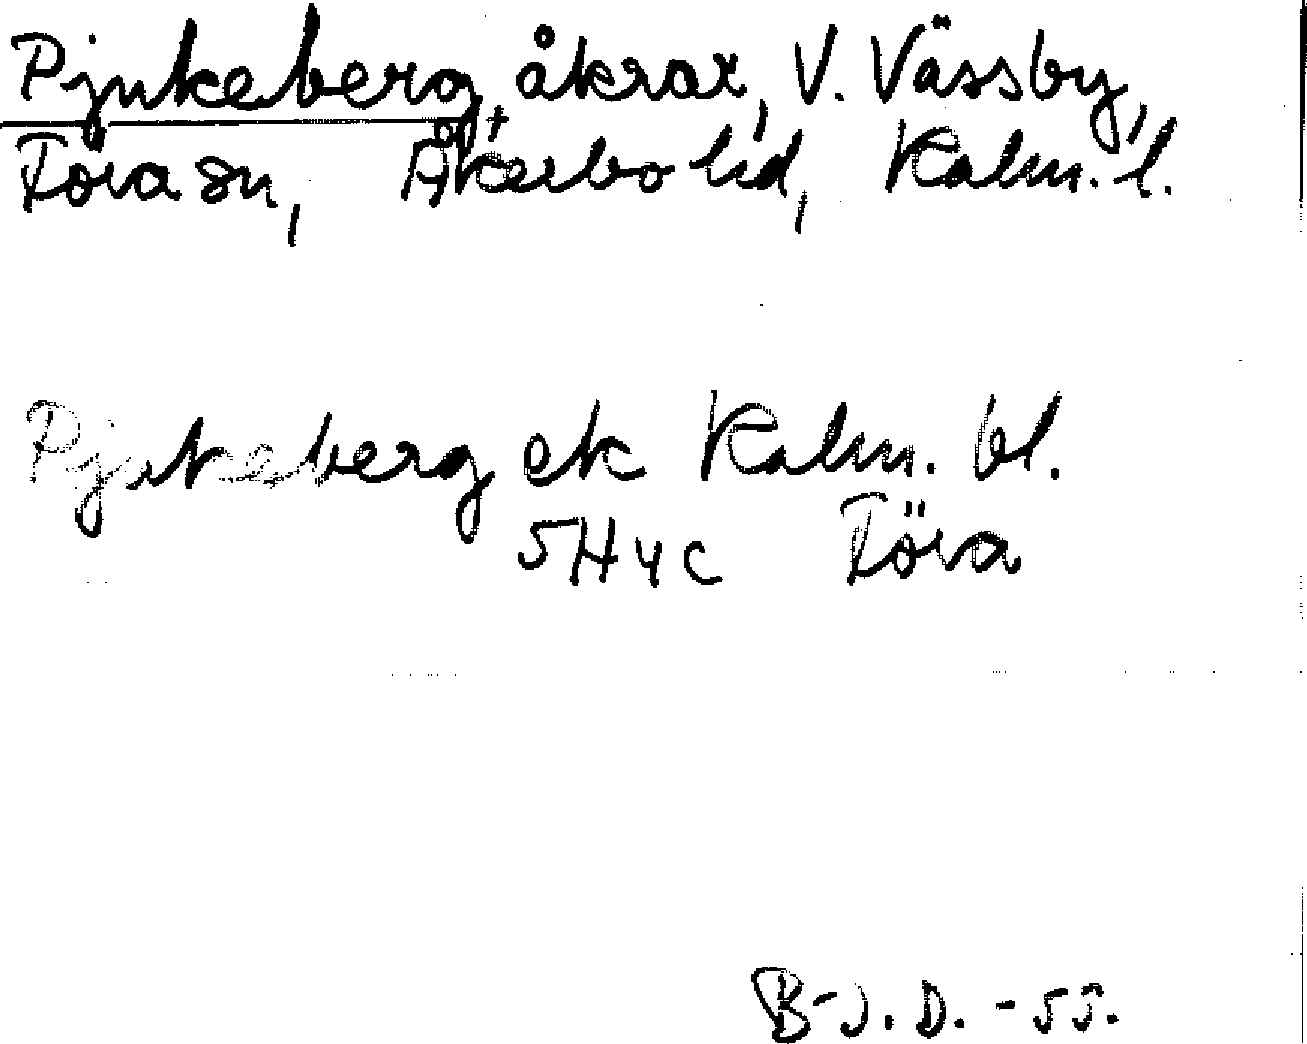 Pjukeberg, åkrar, V. Vässby,
Föra sn, Åkerbo hd, Kalm. l.
Pjukeberg ek Kalm. bl.
5H4c Föra
B-J. D. -55.